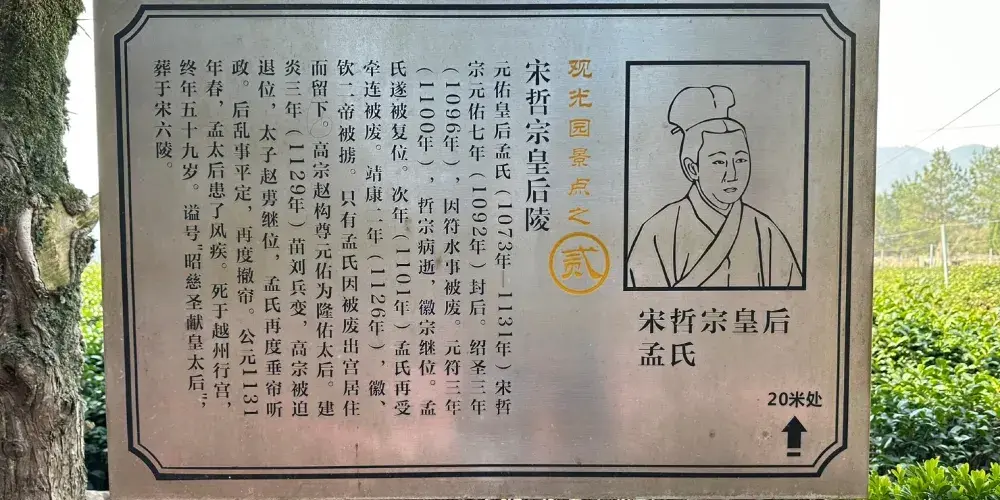 观光园景点之贰
宋哲宗皇后陵
元佑皇后孟氏（1073年—1131年）宋哲
宗元佑七年（1092年）封后。绍圣三年
（1096年），因符水事被废。元符三年
（1100年），哲宗病逝，徽宗继位。孟
氏遂被复位。次年（1101年）孟氏再受
牵连被废。靖康二年（1126年），徽、
钦二帝被掳。只有孟氏因被废出宫居住
而留下。高宗赵构尊元佑为隆佑太后。建
炎三年（1129年）苗刘兵变，高宗被迫
退位，太子赵旉继位，孟氏再度垂帘听
政。后乱事平定，再度撤帘。公元1131
年春，孟太后患了风疾。死于越州行宫，
终年五十九岁。谥号“昭慈圣献皇太后”，
葬于宋六陵。
宋哲宗皇后
孟氏
20米处